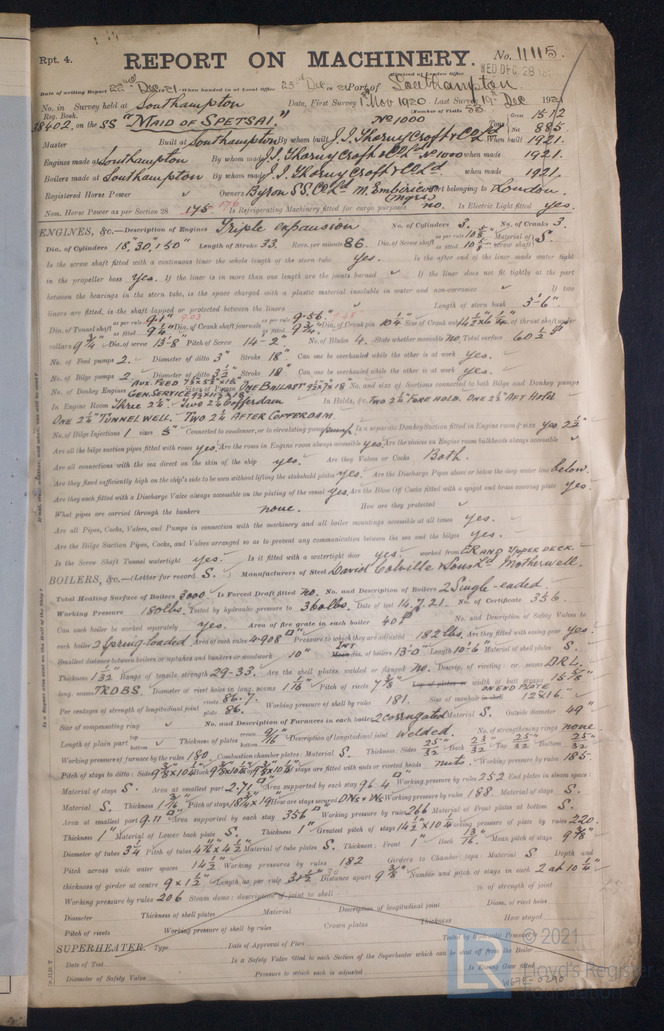 Rpt. 4.
REPORT ON MACHINERY.
No. 11115.
WED. DEC. 28
Date of writing Report 22nd Dec. 21 When handed in at Local Office 23rd Dec. 21 Port of Southampton
No. in Survey held at Southampton Date, First Survey 1st Nov 1920 Last Survey 19th Dec 1921
Reg. Book.
38402. on the SS "MAID OF SPETSAI." No 1000
(Number of Visits 38.)
Tons Gross 1512
Net 885
Master Built at Southampton By whom built J. I. Thornycroft & Co Ld When built 1921.
Engines made at Southampton By whom made J. I. Thornycroft & Co Ld No 1000 when made 1921.
Boilers made at Southampton By whom made J. I. Thornycroft & Co Ld when made 1921.
Registered Horse Power Owners Byron SS Co Ld M. Embiricos Port belonging to London.
Nom. Horse Power as per Section 28 175 176 Is Refrigerating Machinery fitted for cargo purposes no. Is Electric Light fitted yes.
ENGINES, &c.—Description of Engines Triple expansion No. of Cylinders 3. No. of Cranks 3.
Dia. of Cylinders 18", 30", 50" Length of Stroke 33" Revs. per minute 86. Dia. of Screw shaft as per rule as fitted Material of screw shaft S.
Is the screw shaft fitted with a continuous liner the whole length of the stern tube yes. Is the after end of the liner made water tight
in the propeller boss yes. If the liner is in more than one length are the joints burned If the liner does not fit tightly at the part
between the bearings in the stern tube, is the space charged with a plastic material insoluble in water and non-corrosive If two
liners are fitted, is the shaft lapped or protected between the liners Length of stern bush 3'-6".
Dia. of Tunnel shaft as per rule 9.1" as fitted 9 1/4" Dia. of Crank shaft journals as per rule 9.56" as fitted 9 3/4" Dia. of Crank pin 10 1/4 Size of Crank webs Dia. of thrust shaft under
collars 9 3/4" Dia. of screw 13'-8" Pitch of Screw 14'-2" No. of Blades 4. State whether moveable no. Total surface 60 1/2
No. of Feed pumps 2. Diameter of ditto 3" Stroke 18" Can one be overhauled while the other is at work yes.
No. of Bilge pumps 2. Diameter of ditto 3 1/2" Stroke 18" Can one be overhauled while the other is at work yes.
No. of Donkey Engines AUX. FEED GEN. SERVICE Sizes of Pumps ONE BALLAST No. and size of Suctions connected to both Bilge and Donkey pumps
In Engine Room Three 2 1/4". Two 2 1/2" Cofferdam In Holds, &c. TWO 2 1/4" FORE HOLD. ONE 2 1/4" AFT HOLD
ONE 2 1/4" TUNNEL WELL. TWO 2 1/4" AFTER COFFERDAM.
No. of Bilge Injections 1 sizes 5" Connected to condenser, or to circulating pump pump Is a separate Donkey Suction fitted in Engine room & size yes 2 1/2"
Are all the bilge suction pipes fitted with roses yes. Are the roses in Engine room always accessible yes. Are the sluices on Engine room bulkheads always accessible
Are all connections with the sea direct on the skin of the ship yes. Are they Valves or Cocks Both.
Are they fixed sufficiently high on the ship's side to be seen without lifting the stokehold plates yes. Are the Discharge Pipes above or below the deep water line below.
Are they each fitted with a Discharge Valve always accessible on the plating of the vessel yes. Are the Blow Off Cocks fitted with a spigot and brass covering plate yes.
What pipes are carried through the bunkers none. How are they protected
Are all Pipes, Cocks, Valves, and Pumps in connection with the machinery and all boiler mountings accessible at all times yes.
Are the Bilge Suction Pipes, Cocks, and Valves arranged so as to prevent any communication between the sea and the bilges yes.
Is the Screw Shaft Tunnel watertight yes. Is it fitted with a watertight door yes. worked from E.R. AND UPPER DECK.
BOILERS, &c.—(Letter for record S.) Manufacturers of Steel David Colville & Sons Ld Motherwell.
Total Heating Surface of Boilers 3000. Is Forced Draft fitted no. No. and Description of Boilers 2 Single-ended.
Working Pressure 180 lbs. Tested by hydraulic pressure to 360 lbs. Date of test 14.7.21. No. of Certificate 356
Can each boiler be worked separately yes. Area of fire grate in each boiler 40 No. and Description of Safety Valves to
each boiler 2 Spring-loaded Area of each valve 4.908 Pressure to which they are adjusted 182 lbs. Are they fitted with easing gear yes.
Smallest distance between boilers or uptakes and bunkers or woodwork 10" INT dia. of boilers 13'-0 Length 10'-6 Material of shell plates S.
Thickness 1 1/32 Range of tensile strength 29-33. Are the shell plates welded or flanged no. Descrip. of riveting: cir. seams D.R.L.
long. seams T.R.D.B.S. Diameter of rivet holes in long. seams 1 1/16" Pitch of rivets 7 3/8 Lap of plates or width of butt straps 15 5/8"
Per centages of strength of longitudinal joint rivets 86.7. plate 86. Working pressure of shell by rules 181. Size of manhole in shell ON END PLATE 12x16.
Size of compensating ring No. and Description of Furnaces in each boiler 2 corrugated Material S. Outside diameter 49"
Length of plain part top bottom Thickness of plates crown bottom 9/16 Description of longitudinal joint welded. No. of strengthening rings none
Working pressure of furnace by the rules 180. Combustion chamber plates: Material S. Thickness: Sides 25/32 Back 23/32 Top 25/32 Bottom 25/32
Pitch of stays to ditto: Sides Back Top If stays are fitted with nuts or riveted heads nuts. Working pressure by rules 185.
Material of stays S. Area at smallest part 2.71 Area supported by each stay 96.4 Working pressure by rules 252 End plates in steam space:
Material S. Thickness 1 1/16" Pitch of stays 18 3/4 x 19" How are stays secured DNs + Ws. Working pressure by rules 188. Material of stays S.
Area at smallest part 9.11 Area supported by each stay 356 Working pressure by rules 266 Material of Front plates at bottom S.
Thickness 1" Material of Lower back plate S. Thickness 1" Greatest pitch of stays 14 1/2" x 10 1/4 Working pressure of plate by rules 220.
Diameter of tubes 3 1/4 Pitch of tubes Material of tube plates S. Thickness: Front 1" Back 13/16 Mean pitch of stays 9 3/8"
Pitch across wide water spaces 14 1/2 Working pressures by rules 182 Girders to Chamber tops: Material S. Depth and
thickness of girder at centre 9 x 1 1/2" Length as per rule 31 1/2 Distance apart 9 3/8" Number and pitch of stays in each 2 at 10 1/4"
Working pressure by rules 206 Steam dome: description of joint to shell % of strength of joint
Diameter Thickness of shell plates Material Description of longitudinal joint Diam. of rivet holes
Pitch of rivets Working pressure of shell by rules Crown plates Thickness How stayed
SUPERHEATER. Type Date of Approval of Plan Tested by Hydraulic Pressure
Date of Test Is a Safety Valve fitted to each Section of the Superheater which can be shut off from the Boiler
Diameter of Safety Valve Pressure to which each is adjusted Is Easing Gear fitted
© 2021
LR
Lloyd's Register
Foundation
W698-0290